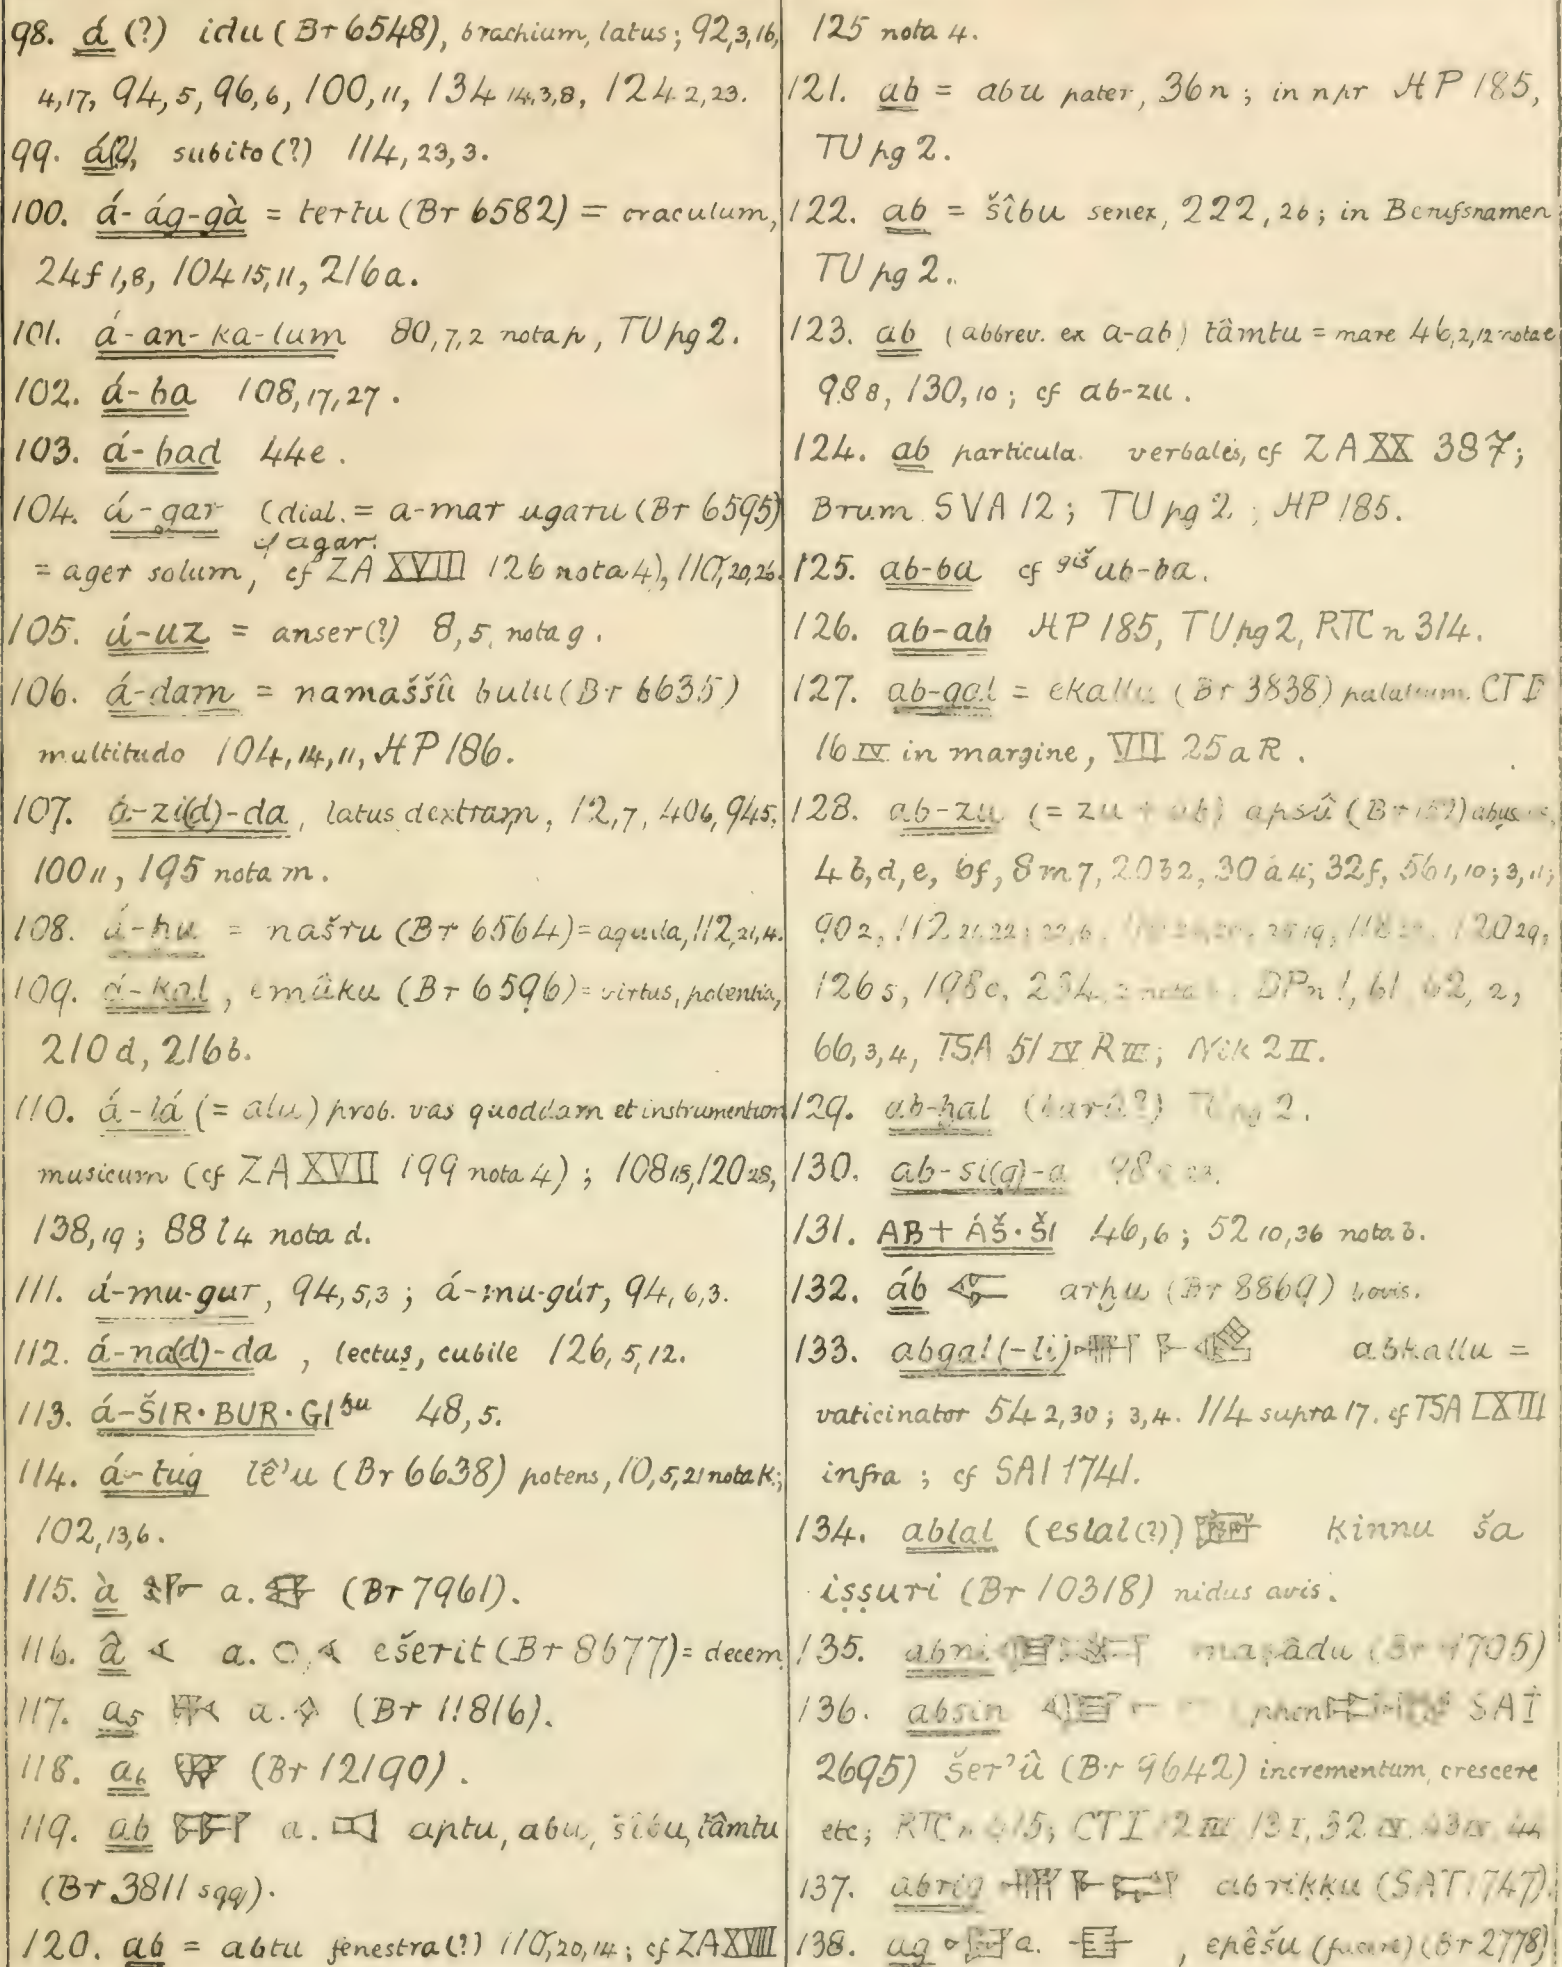 98. á (?) idu (Br 6548), brachium, latus; 92,3,16,
4,17, 94,5, 96,6, 100,11, 134 14,3,8, 124 2,23.
99. á(?), subito(?) 114,23,3.
100. á-ág-gà = tertu (Br 6582) = oraculum,
24f 1,8, 104 15,11, 216a.
101. á-an-ka-lum 80,7,2 nota p, TU pg 2.
102. á-ba 108,17,27.
103. á-bad 44e.
104. á-gar (dial. = a-mar ugaru (Br 6595)
cf agar.
= ager solum, cf ZA XVIII 126 nota 4), 110,20,26.
105. ú-uz = anser(?) 8,5, nota g.
106. á-dam = namaššû bulu (Br 6635)
multitudo 104,14,11, HP 186.
107. á-zi(d)-da, latus dextram, 12,7, 406, 945,
100 11, 195 nota m.
108. á-hu = našru (Br 6564) = aquila, 112,21,4.
109. á-kal, emûku (Br 6596) = virtus, potentia,
210d, 216b.
110. á-lá (= alu) prob. vas quoddam et instrumentum
musicum (cf ZA XVII 199 nota 4); 108 18, 120 28,
138,19; 88 l4 nota d.
111. á-mu-gur, 94,5,3; á-mu-gúr, 94,6,3.
112. á-na(d)-da, lectus, cubile 126,5,12.
113. á-ŠIR·BUR·GI 48,5.
114. á-tug lê'u (Br 6638) potens, 10,5,21 nota k;
102,13,6.
115. à a. (Br 7961).
116. â a. ešerit (Br 8677) = decem
117. a5 a. (Br 11816).
118. a6 (Br 12190).
119. ab a. aptu, abu, šîbu, tâmtu
(Br 3811 sqq).
120. ab = abtu fenestra(?) 110,20,14; cf ZA XVIII
125 nota 4.
121. ab = abu pater, 36n; in npr HP 185,
TU pg 2.
122. ab = šîbu senex, 222,26; in Berufsnamen
TU pg 2.
123. ab (abbrev. ex a-ab) tâmtu = mare 46,2,12 nota e
98 8, 130,10; cf ab-zu.
124. ab particula verbales, cf ZA XX 387;
Brum SVA 12; TU pg 2; HP 185.
125. ab-ba cf giš ub-ba.
126. ab-ab HP 185, TU pg 2, RTC n 314.
127. ab-gal = ekallu (Br 3838) palatium. CT I
16 IV in margine, VII 25a R.
128. ab-zu (= zu + ab) apsû (Br )
4 b,d,e, 6f, 8m7, 20 3 2, 30 a 4; 32f, 56 1,10; 3,11;
90 2, 112 21,22; 22,6, 120 29,
126 5, 198c, DP n 1, 61 62, 2,
66,3,4, TSA 51 IV R III; Nik 2 II.
129. ab-hal TU pg 2.
130. ab-si(g)-a 98
131. AB+ÁŠ·ŠI 46,6; 52 10,36 nota b.
132. áb arhu (Br 8869) bovis.
133. abgal(-li) abkallu =
vaticinator 54 2,30; 3,4. 114 supra 17. cf TSA LXIII
infra; cf SAI 1741.
134. ablal (eslal(?)) kinnu ša
iṣṣuri (Br 10318) nidus avis.
135. abni
136. absin SAI
2695) šer'û (Br 9642) incrementum, crescere
etc; RTC CT I
137. abrig abrikku (SAI 1747).
138. ag a. , epêšu (facere) (Br 2778)